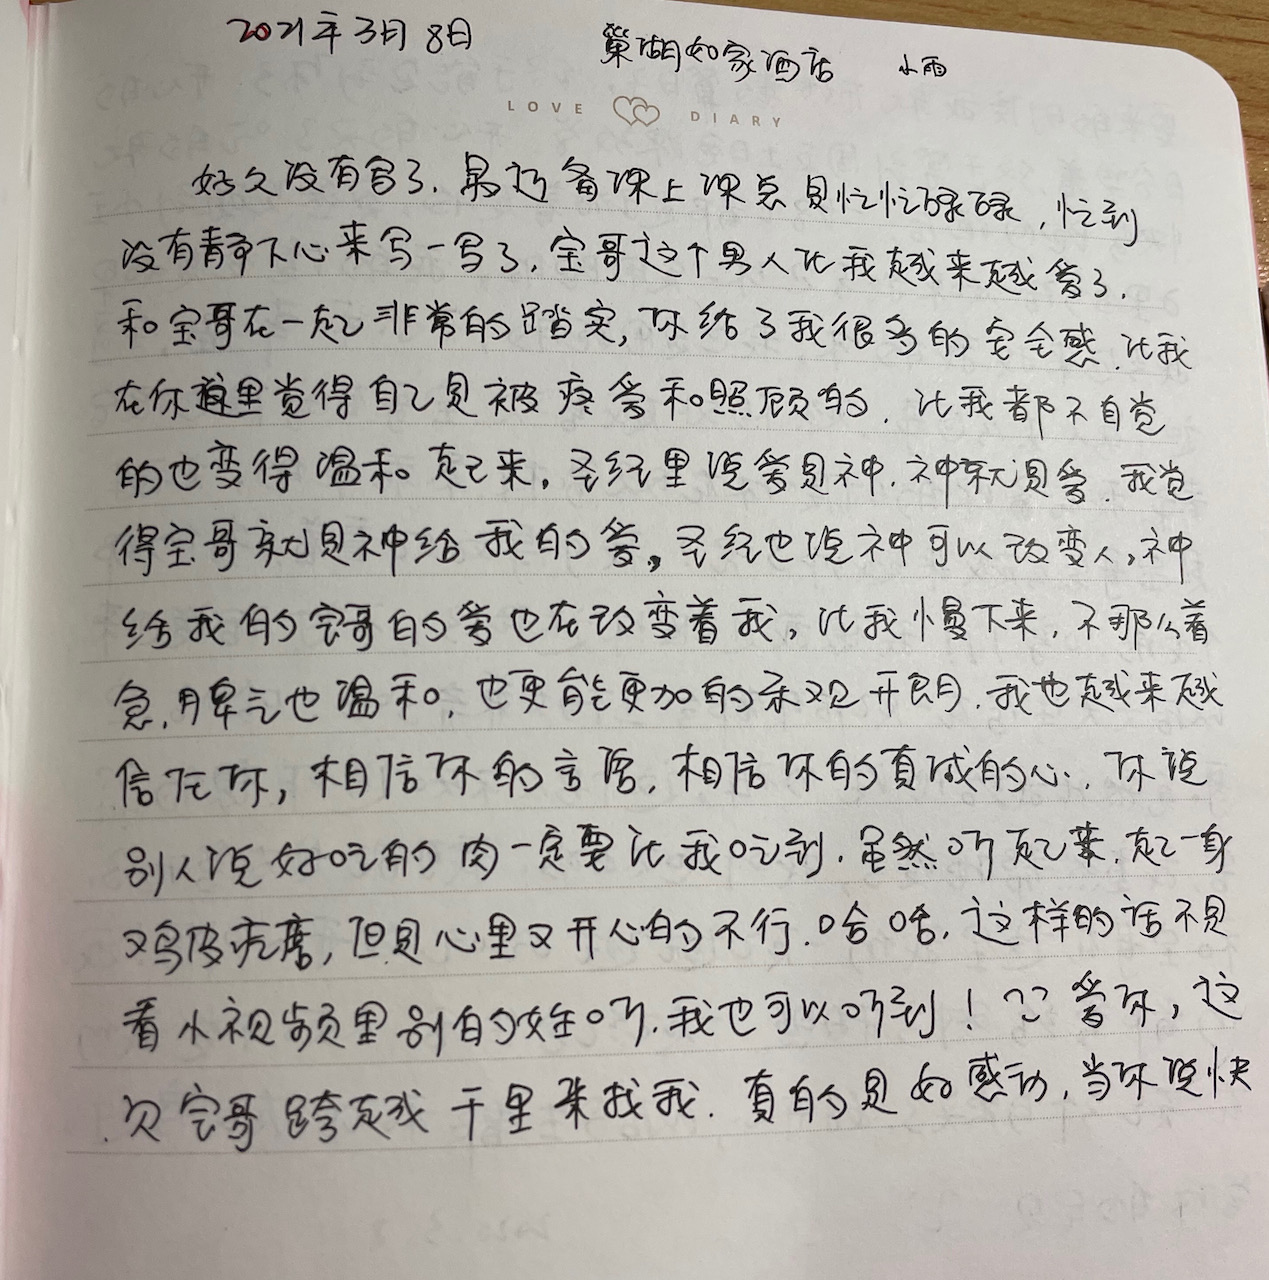 2021年3月8日 巢湖如家酒店 小雨
LOVE DIARY
好久没有写了.最近备课上课总是忙忙碌碌,忙到
没有静下心来写一写了,宝哥这个男人让我越来越爱了.
和宝哥在一起非常的踏实,你给了我很多的安全感.让我
在你这里觉得自己是被疼爱和照顾的.让我都不自觉
的也变得温和起来.圣经里说爱是神.神就是爱.我觉
得宝哥就是神给我的爱,圣经也说神可以改变人,神
给我的宝哥的爱也在改变着我,让我慢下来,不那么着
急,脾气也温和,也更能更加的乐观开朗.我也越来越
信任你,相信你的言语,相信你的真诚的心.你说
别人说好吃的肉一定要让我吃到.虽然听起来,起一身
又鸡皮疙瘩,但是心里又开心的不行.哈哈,这样的话不是
看小视频里别的姓听,我也可以听到!爱你,这
次宝哥跨越千里来找我.真的是好感动,当你说快